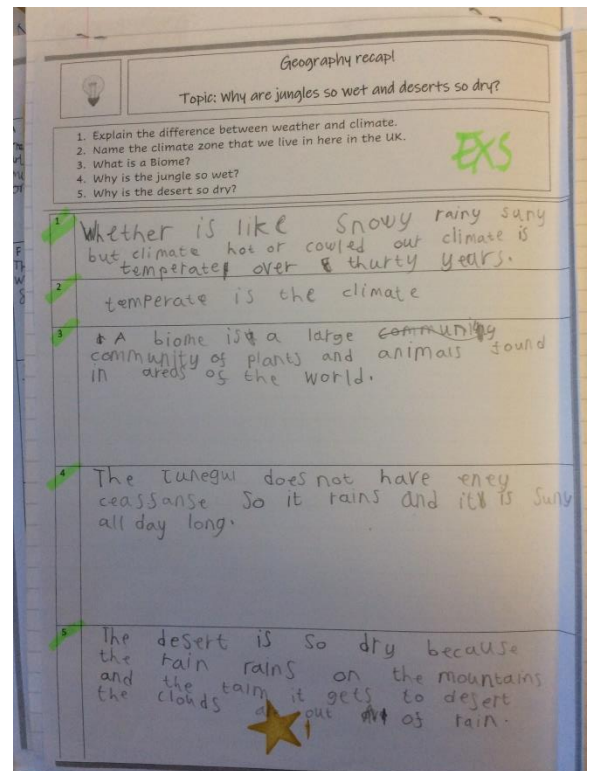 Geography recap!
Topic: Why are jungles so wet and deserts so dry?
1. Explain the difference between weather and climate.
2. Name the climate zone that we live in here in the UK.
3. What is a Biome?
4. Why is the jungle so wet?
5. Why is the desert so dry?
EXS
1
Whether is like Snowy rainy suny
but climate hot or cowled out climate is
temperate over thurty years.
2
temperate is the climate
3
A biome is a large communing
community of plants and animals found
in areas of the world.
4
The Junegul does not have eney
ceassanse So it rains and it is Suny
all day long.
5
The desert is so dry because
the rain rains on the mountains
and the taim it gets to desert
the clouds out of rain.